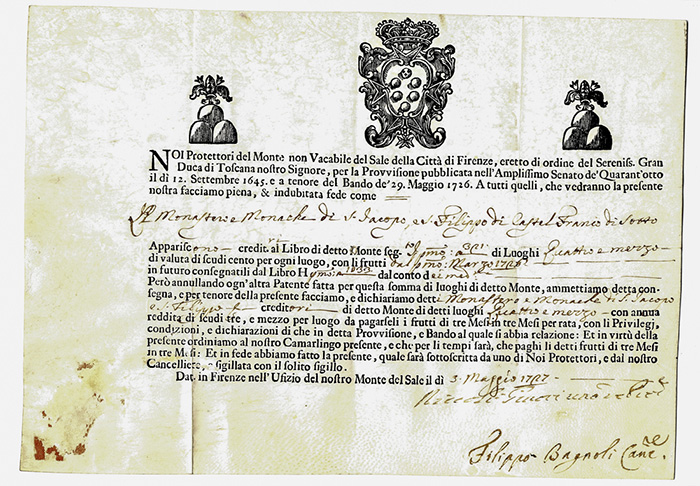 NOI Protettori del Monte non Vacabile del Sale della Città di Firenze, eretto di ordine del Sereniss. Gran
Duca di Toscana nostro Signore, per la Provvisione pubblicata nell'Amplissimo Senato de' Quarant'otto
il dì 12. Settembre 1645. e a tenore del Bando de' 29. Maggio 1726. A tutti quelli, che vedranno la presente
nostra facciamo piena, & indubutata fede come
Il Monastero e Monache di S. Jacopo, e S. Filippo di Castel Franco di Sotto
Appariscono creditri al Libro di detto Monte seg. di Luoghi Quattro e mezzo
di valuta di scudi cento per ogni luogo, con li frutti Marzo
in futuro consegnatili dal Libro H dal conto
Però annullando ogn'altra Patente fatta per questa somma di luoghi di detto Monte, ammettiamo detta con-
segna, e per tenore della presente facciamo, e dichiariamo detti Monastero e Monache di S. Jacopo
e S. Filippo creditori di detto Monte di detti luoghi Quattro e mezzo con annua
reddita di scudi tre, e mezzo per luogo da pagarseli i frutti di tre Mesi in tre Mesi per rata, con li Privilegj,
condizioni, e dichiarazioni di che in detta Provvisione, e Bando al quale si abbia relazione: Et in virtù della
presente ordiniamo al nostro Camarlingo presente, e che per li tempi sarà, che paghi li detti frutti di tre Mesi
in tre Mesi: Et in fede abbiamo fatto la presente, quale sarà sottoscritta da uno di Noi Protettori, e dal nostro
Cancelliere, e sigillata con il solito sigillo.
Dat. in Firenze nell'Ufizio del nostro Monte del Sale il dì 3. Maggio 1727
Filippo Bagnoli Canre.